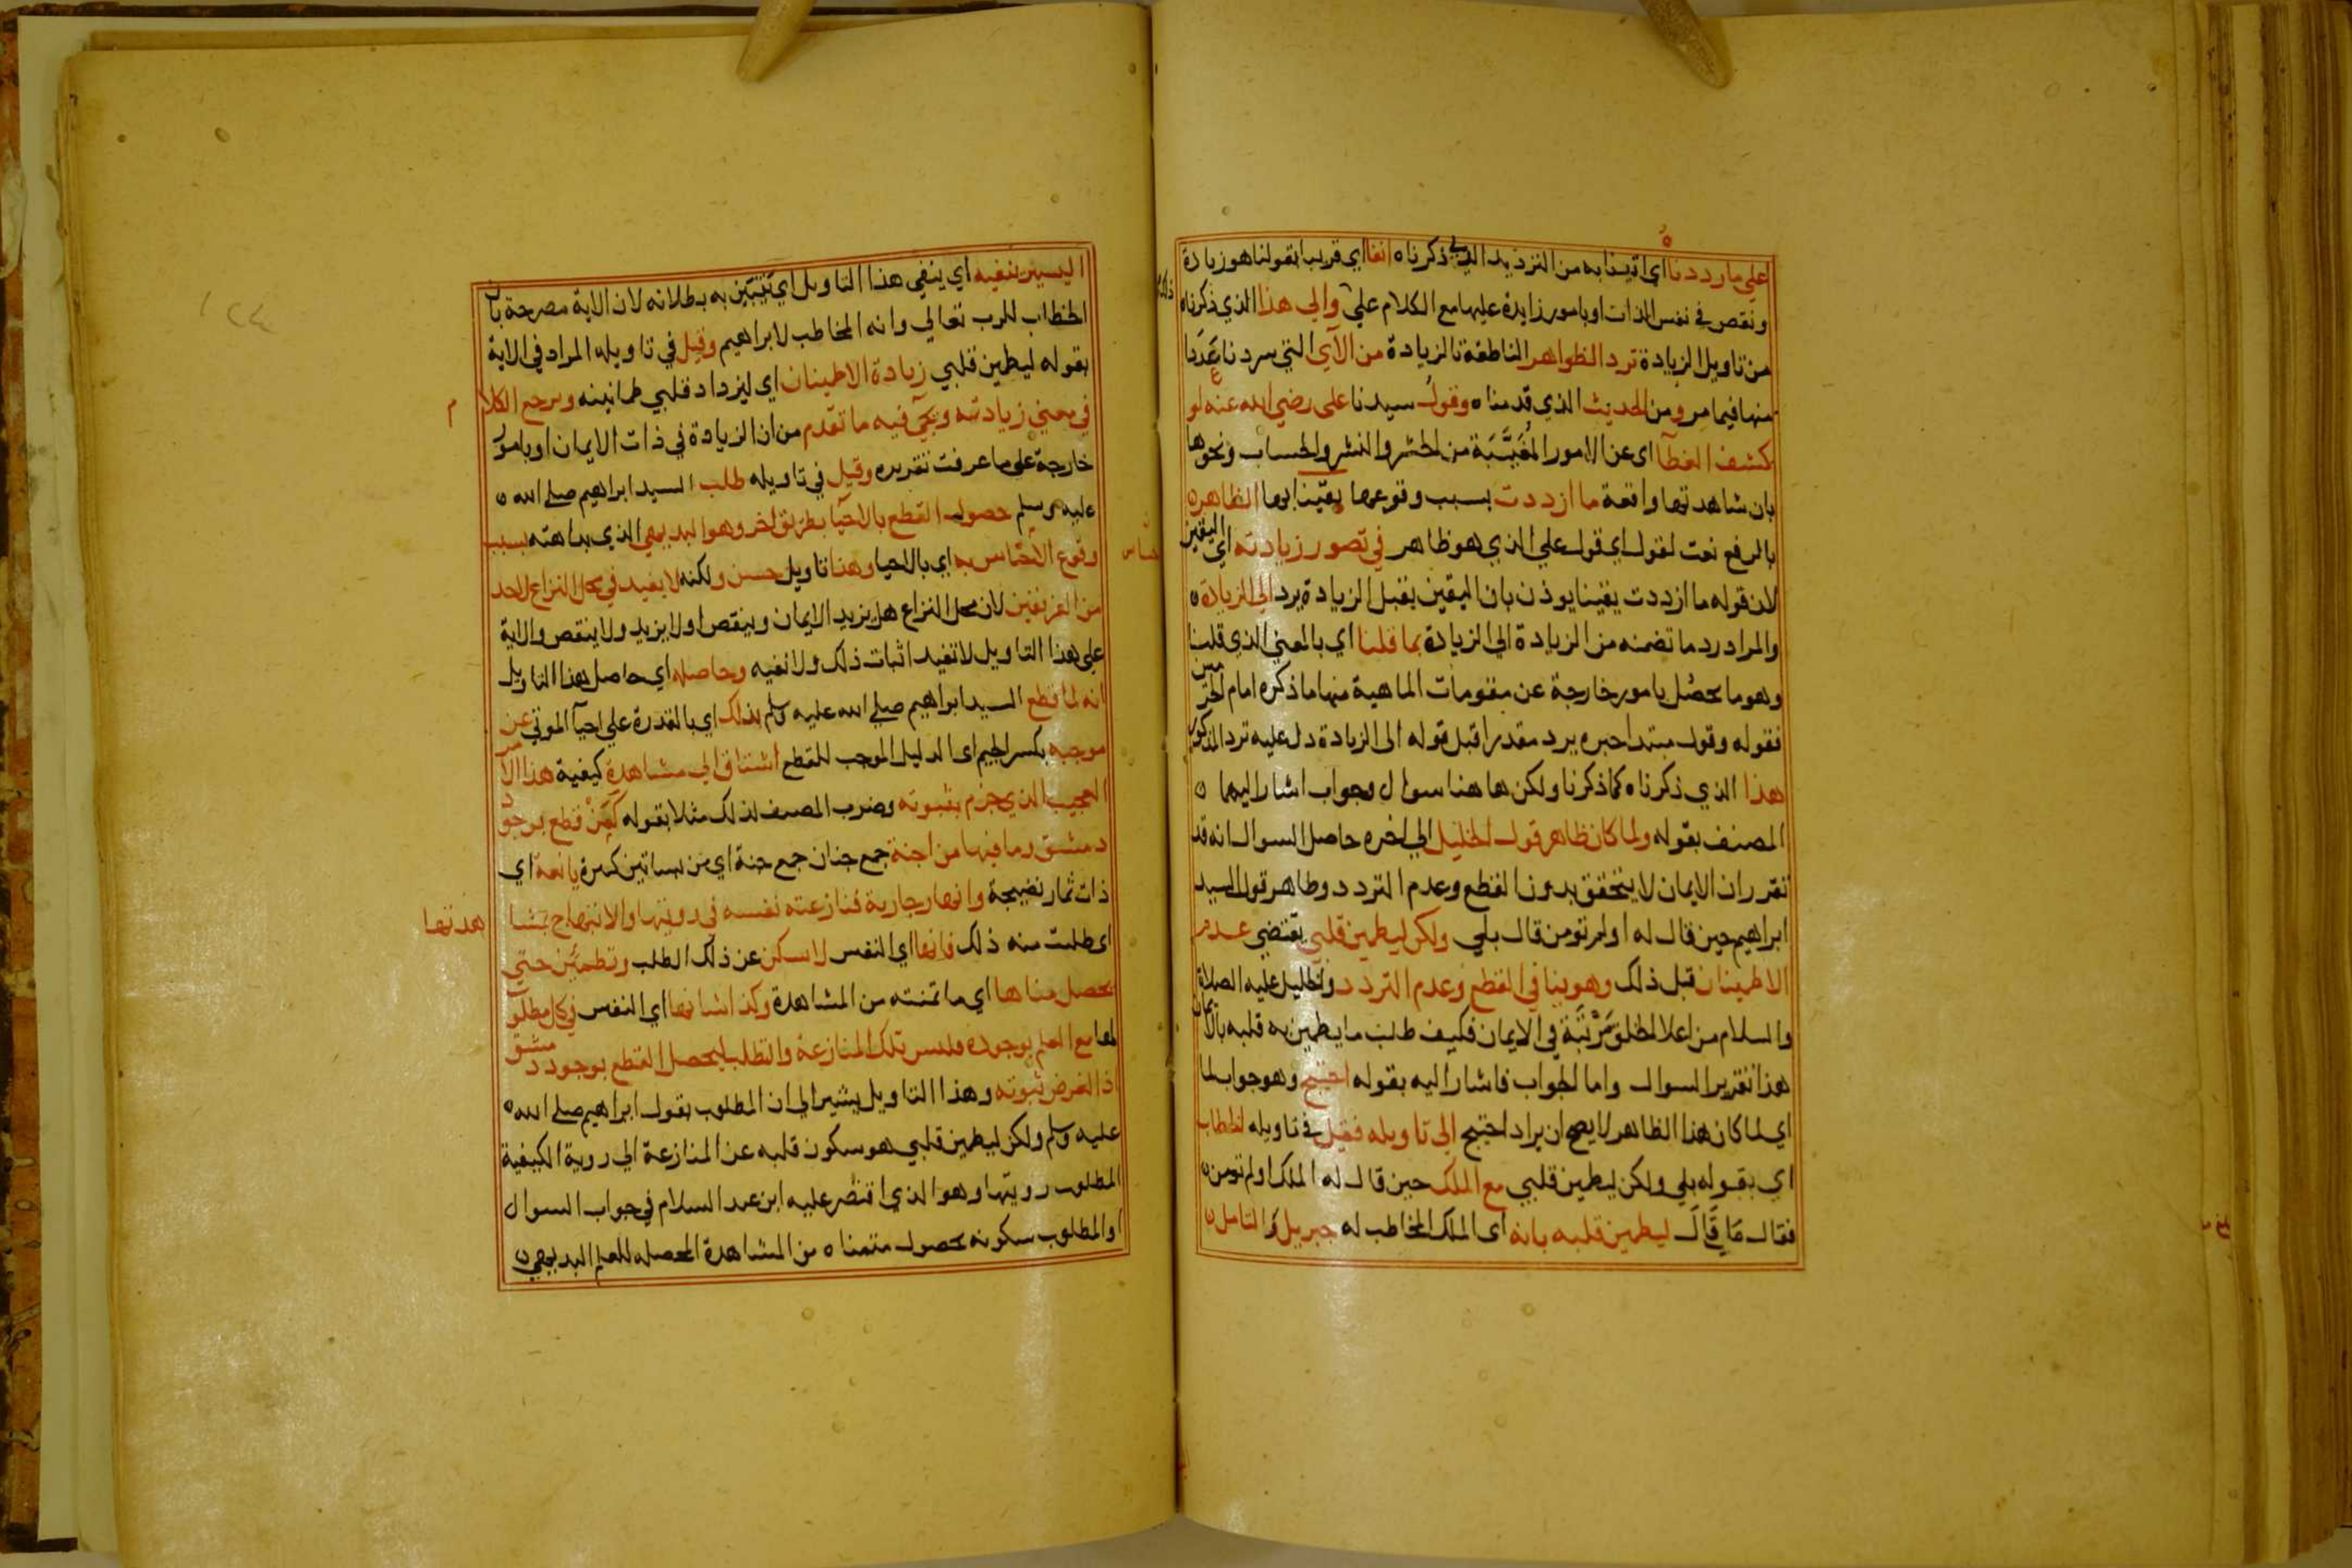 علي ما رددنا اي اتينا به من الترديد الذي ذكرناه انفا اي قريبا بقولنا هو زيادة
ونقص في نفس الذات او بامور زايدة عليها مع الكلام علي والي هذا الذي ذكرناه
من تاويل الزيادة ترد الظواهر الناطقة بالزيادة من الآي التي سردنا عددا
منها فيما مر ومن الحديث الذي قدمناه وقول سيدنا علي رضي الله عنه لو
كشف الغطآ اي عن الامور المغيبة من الحشر والنشر والحساب ونحوها
بان شاهدتها واقعة ما ازددت بسبب وقوعها يقينا بها الظاهر
بالرفع نعت لقول اي قول علي الذي هو ظاهر في تصور زيادته اي اليقين
لان قوله ما ازددت يقينا يوذن بان اليقين يقبل الزيادة يرد الي الزيادة
والمراد رد ما تضمنه من الزيادة الي الزيادة بما قلنا اي بالمعني الذي قلنا
وهو ما يحصل بامور خارجة عن مقومات الماهية منها ما ذكره امام الحرمين
فقوله وقول مبتدا خبره يرد مقدرا قبل قوله الي الزيادة دل عليه ترد المذكور
هذا الذي ذكرناه كما ذكرنا ولكن هاهنا سوال وجواب اشار اليهما
المصنف بقوله ولما كان ظاهر قول الخليل الي اخره حاصل السوال انه قد
تقرر ان الايمان لا يتحقق بدون القطع وعدم التردد وظاهر قول السيد
ابراهيم حين قال له اولم تومن قال بلي ولكن ليطمين قلبي يقتضي عدم
الاطمينان قبل ذلك وهو ينافي القطع وعدم التردد والخليل عليه الصلاة
والسلام من اعلا الخلق مرتبة في الايمان فكيف طلب ما يطمين به قلبه بالايمان
هذا تقرير السوال واما الجواب فاشار اليه بقوله احتيج وهو جواب لما
اي لما كان هذا الظاهر لا يصح ان يراد احتيج الي تاويله فقيل في تاويله الخطاب
اي بقوله بلي ولكن ليطمين قلبي مع الملك حين قال له الملك اولم تومن
فقال ما قال ليطمين قلبه بانه اي الملك المخاطب له جبريل والتامل
اليسير ينفيه اي ينفي هذا التاويل اي تبين به بطلانه لان الاية مصرحة بان
الخطاب للرب تعالي وانه المخاطب لابراهيم وقيل في تاويله المراد في الاية
بقوله ليطمين قلبي زيادة الاطمينان اي ليزداد قلبي طمانينه ويرجع الكلام
في معني زيادته ويجي فيه ما تقدم من ان الزيادة في ذات الايمان او بامور
خارجة علي ما عرفت تقريره وقيل في تاويله طلب السيد ابراهيم صلي الله
عليه وسلم حصول القطع بالاحيآ بطريق اخر وهو البديهي الذي بداهته بسبب
وقوع الاحساس به اي بالاحيا وهذا تاويل حسن ولكنه لا يفيد في محل النزاع لاحد
من الفريقين لان محل النزاع هل يزيد الايمان وينقص او لا يزيد ولا ينقص والاية
علي هذا التاويل لا تفيد اثبات ذلك ولا نفيه وحاصله اي حاصل هذا التاويل
انه لما قطع السيد ابراهيم صلي الله عليه وسلم بذلك اي بالقدرة علي احيآ الموتي عن
موجبه بكسر الجيم اي الدليل الموجب للقطع اشتاق الي مشاهدة كيفية هذا الامر
العجيب الذي جزم بثبوته وضرب المصنف لذلك مثلا بقوله كمن قطع بوجود
دمشق وما فيها من اجنة جمع جنان جمع جنة اي من بساتين كثيرة يانعة اي
ذات ثمار نضيجة وانهار جارية فنازعته نفسه في رويتها والابتهاج بمشاهدتها
اي طلبت منه ذلك فانها اي النفس لا تسكن عن ذلك الطلب وتطمئن حتي
يحصل مناها اي ما تمنته من المشاهدة وكذا شانها اي النفس في كل مطلوب
لها مع العلم بوجوده فليس تلك المنازعة والتطلب ليحصل القطع بوجود دمشق
اذ الفرض ثبوته وهذا التاويل يشير الي ان المطلوب بقول ابراهيم صلي الله
عليه وسلم ولكن ليطمين قلبي هو سكون قلبه عن المنازعة الي روية الكيفية
المطلوب رويتها وهو الذي اقتصر عليه ابن عبد السلام في جواب السوال
او المطلوب سكونه بحصول متمناه من المشاهدة المحصله للعلم البديهي